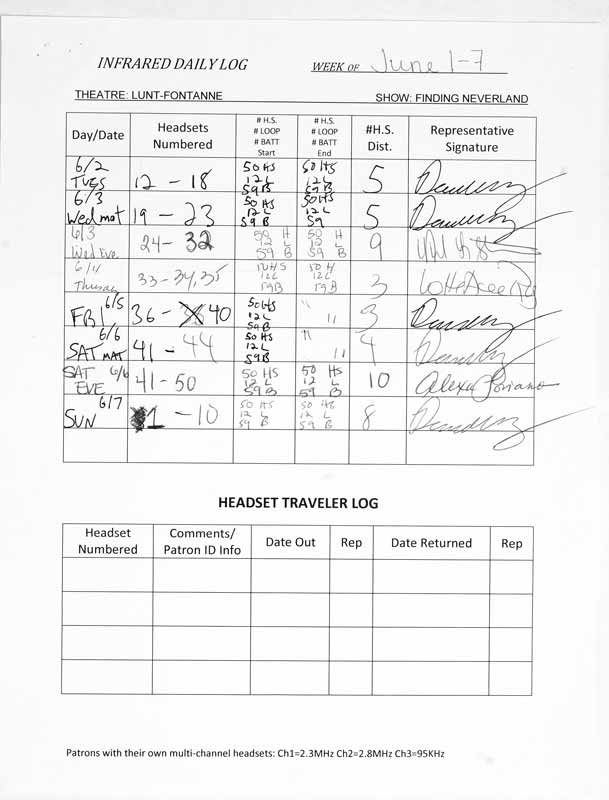 INFRARED DAILY LOG WEEK OF June 1-7
THEATRE: LUNT-FONTANNE SHOW: FINDING NEVERLAND
Day/Date Headsets Numbered # H.S. # LOOP # BATT Start # H.S. # LOOP # BATT End #H.S. Dist. Representative Signature
6/2 TUES 12 - 18 50 HS 12 L 59 B 50 HS 12 L 59 B 5
6/3 Wed mat 19 - 23 50 HS 12 L 59 B 50 HS 12 L 59 5
6/3 Wed Eve 24 - 32 50 H 12 L 59 B 50 H 12 L 59 B 9
6/4 33 - 34, 35 3
FRI 6/5 36 - 40 50 HS 12 L 59 B " " 3
6/6 SAT MAT 41 - 44 50 HS 12 L 59 B " " 4
SAT EVE 6/6 41 - 50 50 HS 12 L 59 B 50 HS 12 L 59 B 10 Alexa Soriano
SUN 6/7 1 - 10 50 HS 12 L 59 B 50 HS 12 L 59 B 8
HEADSET TRAVELER LOG
Headset Numbered Comments/ Patron ID Info Date Out Rep Date Returned Rep
Patrons with their own multi-channel headsets: Ch1=2.3MHz Ch2=2.8MHz Ch3=95KHz